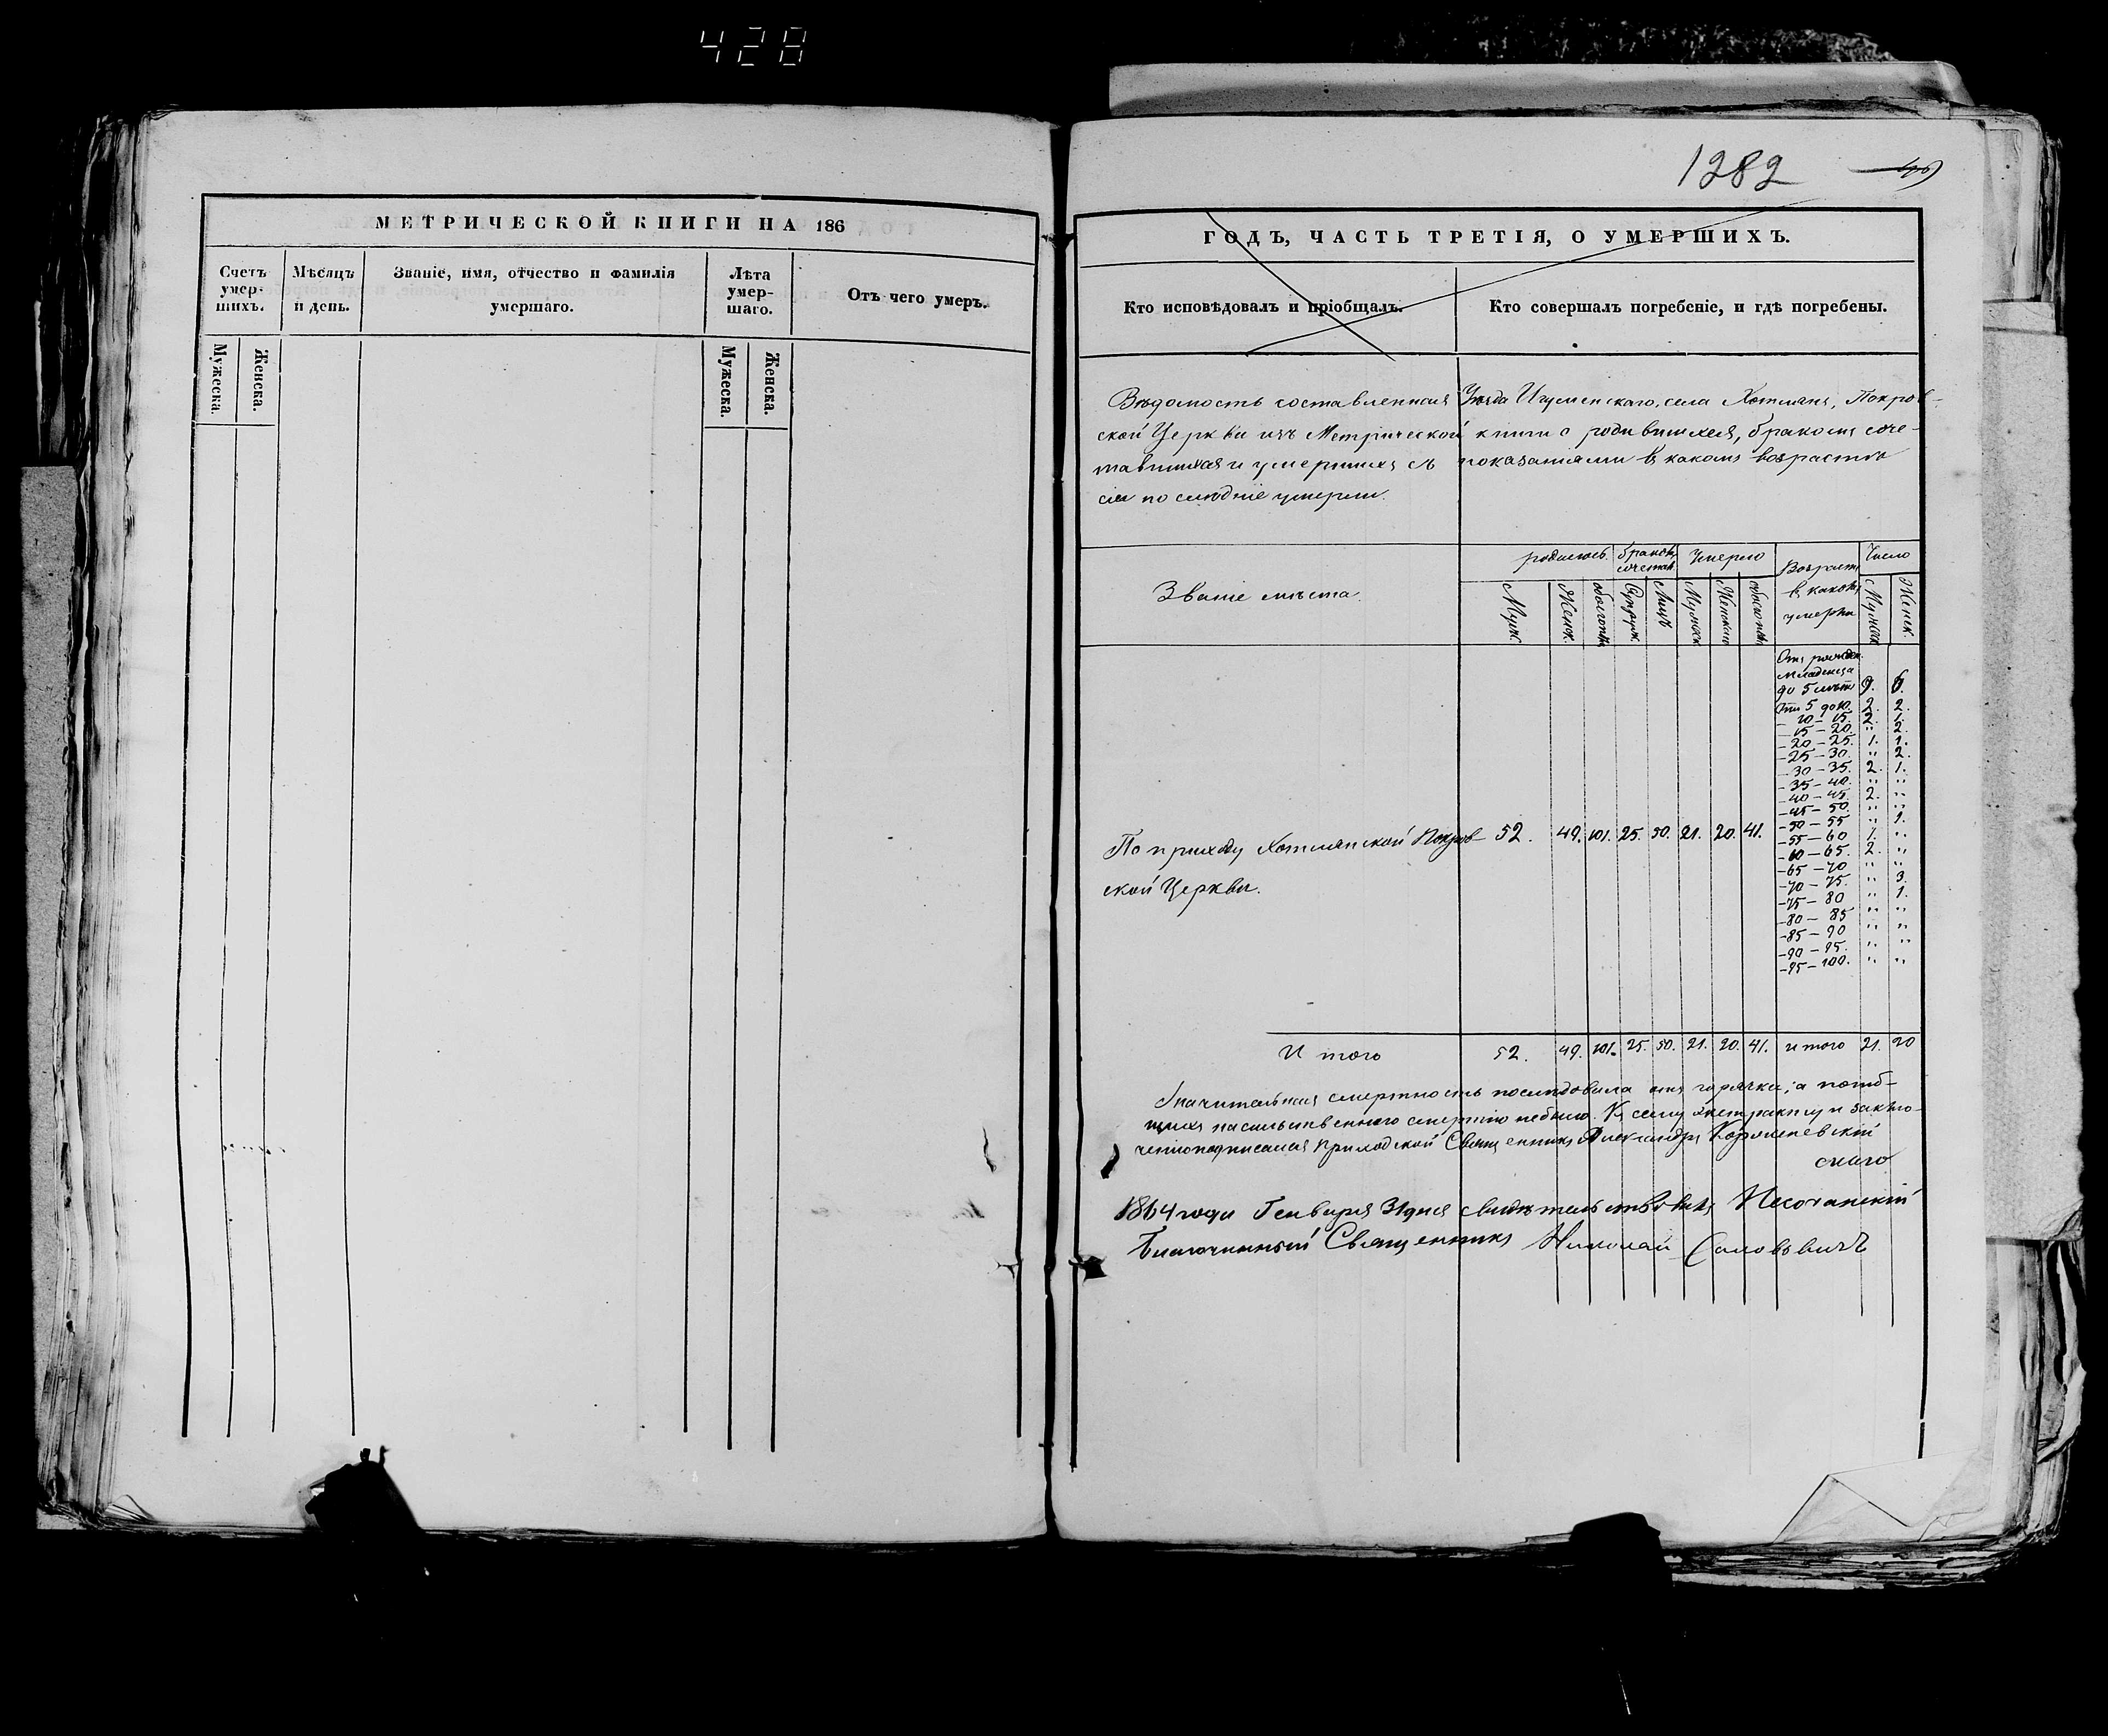 428
МЕТРИЧЕСКОЙ КНИГИ НА 186
Счетъ умер-шихъ.
Мѣсяцъ и день.
Званіе, имя, отчество и фамилія умершаго.
Лѣта умер-шаго.
Отъ чего умеръ.
Мужеска.
Женска.
Мужеска.
Женска.
1282
ГОДЪ, ЧАСТЬ ТРЕТІЯ, О УМЕРШИХЪ.
Кто исповѣдовалъ и пріобщалъ.
Кто совершалъ погребеніе, и гдѣ погребены.
Вѣдомость составленная Уѣзда Игуменскаго, села Хотлянъ, Покров-
ской Церкви изъ Метрической книги о родившихся, бракомъ соче-
тавшихся и умершихъ съ показаніями въ какомъ возрастѣ
сіи послѣдніе умерли.
Званіе мѣста.
родилось.
браковъ сочетан.
Умерло
Возрастъ въ какомъ умерли
Число
Муж.
Женск.
обоего
Супруж.
Лицъ
Мужск
Женски
обоего
Мужск
Женск.
Отъ рожден.
младенца
до 5 лѣтъ 9. 6.
Отъ 5 до 10. 2. 2.
– 10 – 15. 2. 1.
– 15 – 20. " 2.
– 20 – 25. 1. 1.
– 25 – 30. " 2.
– 30 – 35. 2. 1.
– 35 – 40. " "
– 40 – 45. 2. "
– 45 – 50. " "
– 50 – 55 " 1.
– 55 – 60 1. "
– 60 – 65. 2. "
– 65 – 70 " "
– 70 – 75. " 3.
– 75 – 80 " 1.
– 80 – 85 " "
– 85 – 90 " "
– 90 – 95. " "
– 95 – 100. " "
По приходу Хотлянской Покров- 52. 49. 101. 25. 50. 21. 20. 41.
ской Церкви.
Итого 52. 49. 101. 25. 50. 21. 20. 41. итого 21. 20
Значительная смертность послѣдовала отъ горячки; а погиб-
шихъ насильственною смертію небыло. Къ сему экстракту и заклю-
ченію подписался Приходской Священникъ Александръ
1864 года Генваря 31 дня свидѣтельствовалъ
Благочинный Священникъ Николай